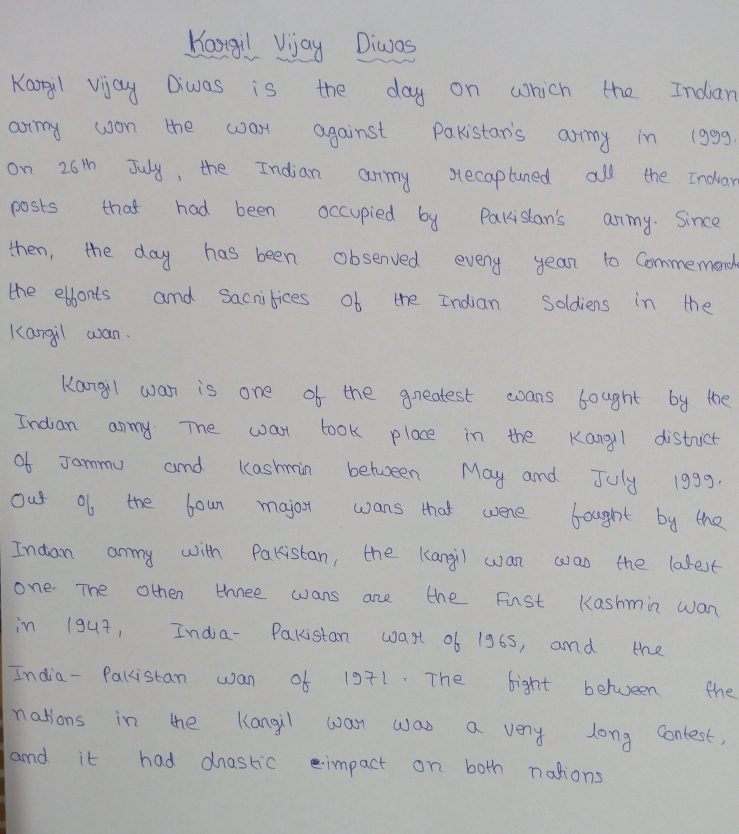 Kargil Vijay Diwas
Kargil Vijay Diwas is the day on which the Indian
army won the war against Pakistan's army in 1999.
On 26th July, the Indian army recaptured all the Indian
posts that had been occupied by Pakistan's army. Since
then, the day has been observed every year to Commemorat
the efforts and Sacrifices of the Indian Soldiers in the
Kargil war.
Kargil war is one of the greatest wars fought by the
Indian army. The war took place in the Kargil district
of Jammu and Kashmir between May and July 1999.
Out of the four major wars that were fought by the
Indian army with Pakistan, the Kargil war was the latest
one. The Other three wars are the First Kashmir war
in 1947, India-Pakistan war of 1965, and the
India-Pakistan war of 1971. The fight between the
nations in the Kargil war was a very long Contest,
and it had drastic impact on both nations